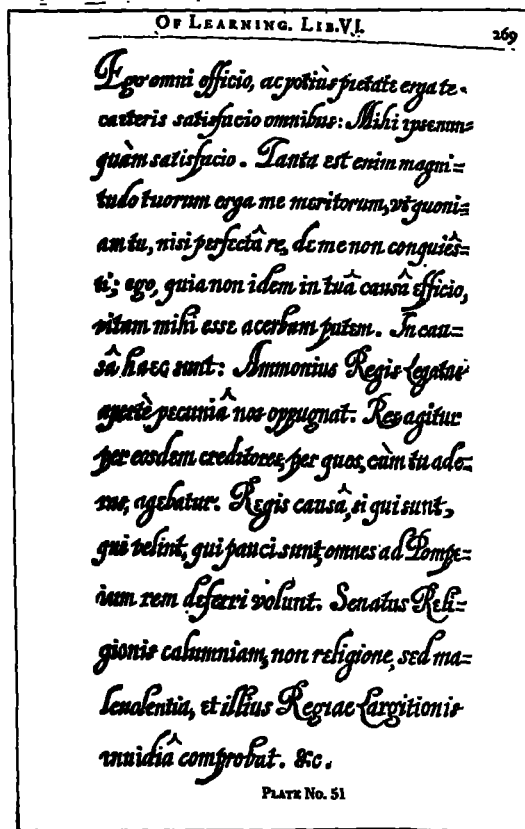 OF LEARNING. LIB. VI. 269
Ego omni officio, ac potiùs pietate erga te.
caeteris satisfacio omnibus: Mihi ipse nun=
quàm satisfacio. Tanta est enim magni=
tudo tuorum erga me meritorum, vt quoni=
am tu, nisi perfectâ re, de me non conquiês=
ti; ego, quia non idem in tuâ causâ efficio,
vitam mihi esse acerbam putem. In cau=
sâ haec sunt: Ammonius Regis Legatus
apertè pecuniâ nos oppugnat: Res agitur
per eosdem creditores, per quos, cùm tu ade=
ras, agebatur. Regis causâ, si qui sunt,
qui velint, qui pauci sunt, omnes ad Pompe=
ium rem deferri volunt. Senatus Reli=
gionis calumniam, non religione, sed ma=
leuolentia, et illius Regiae Largitionis
inuidiâ comprobat. &c.
PLATE NO. 51